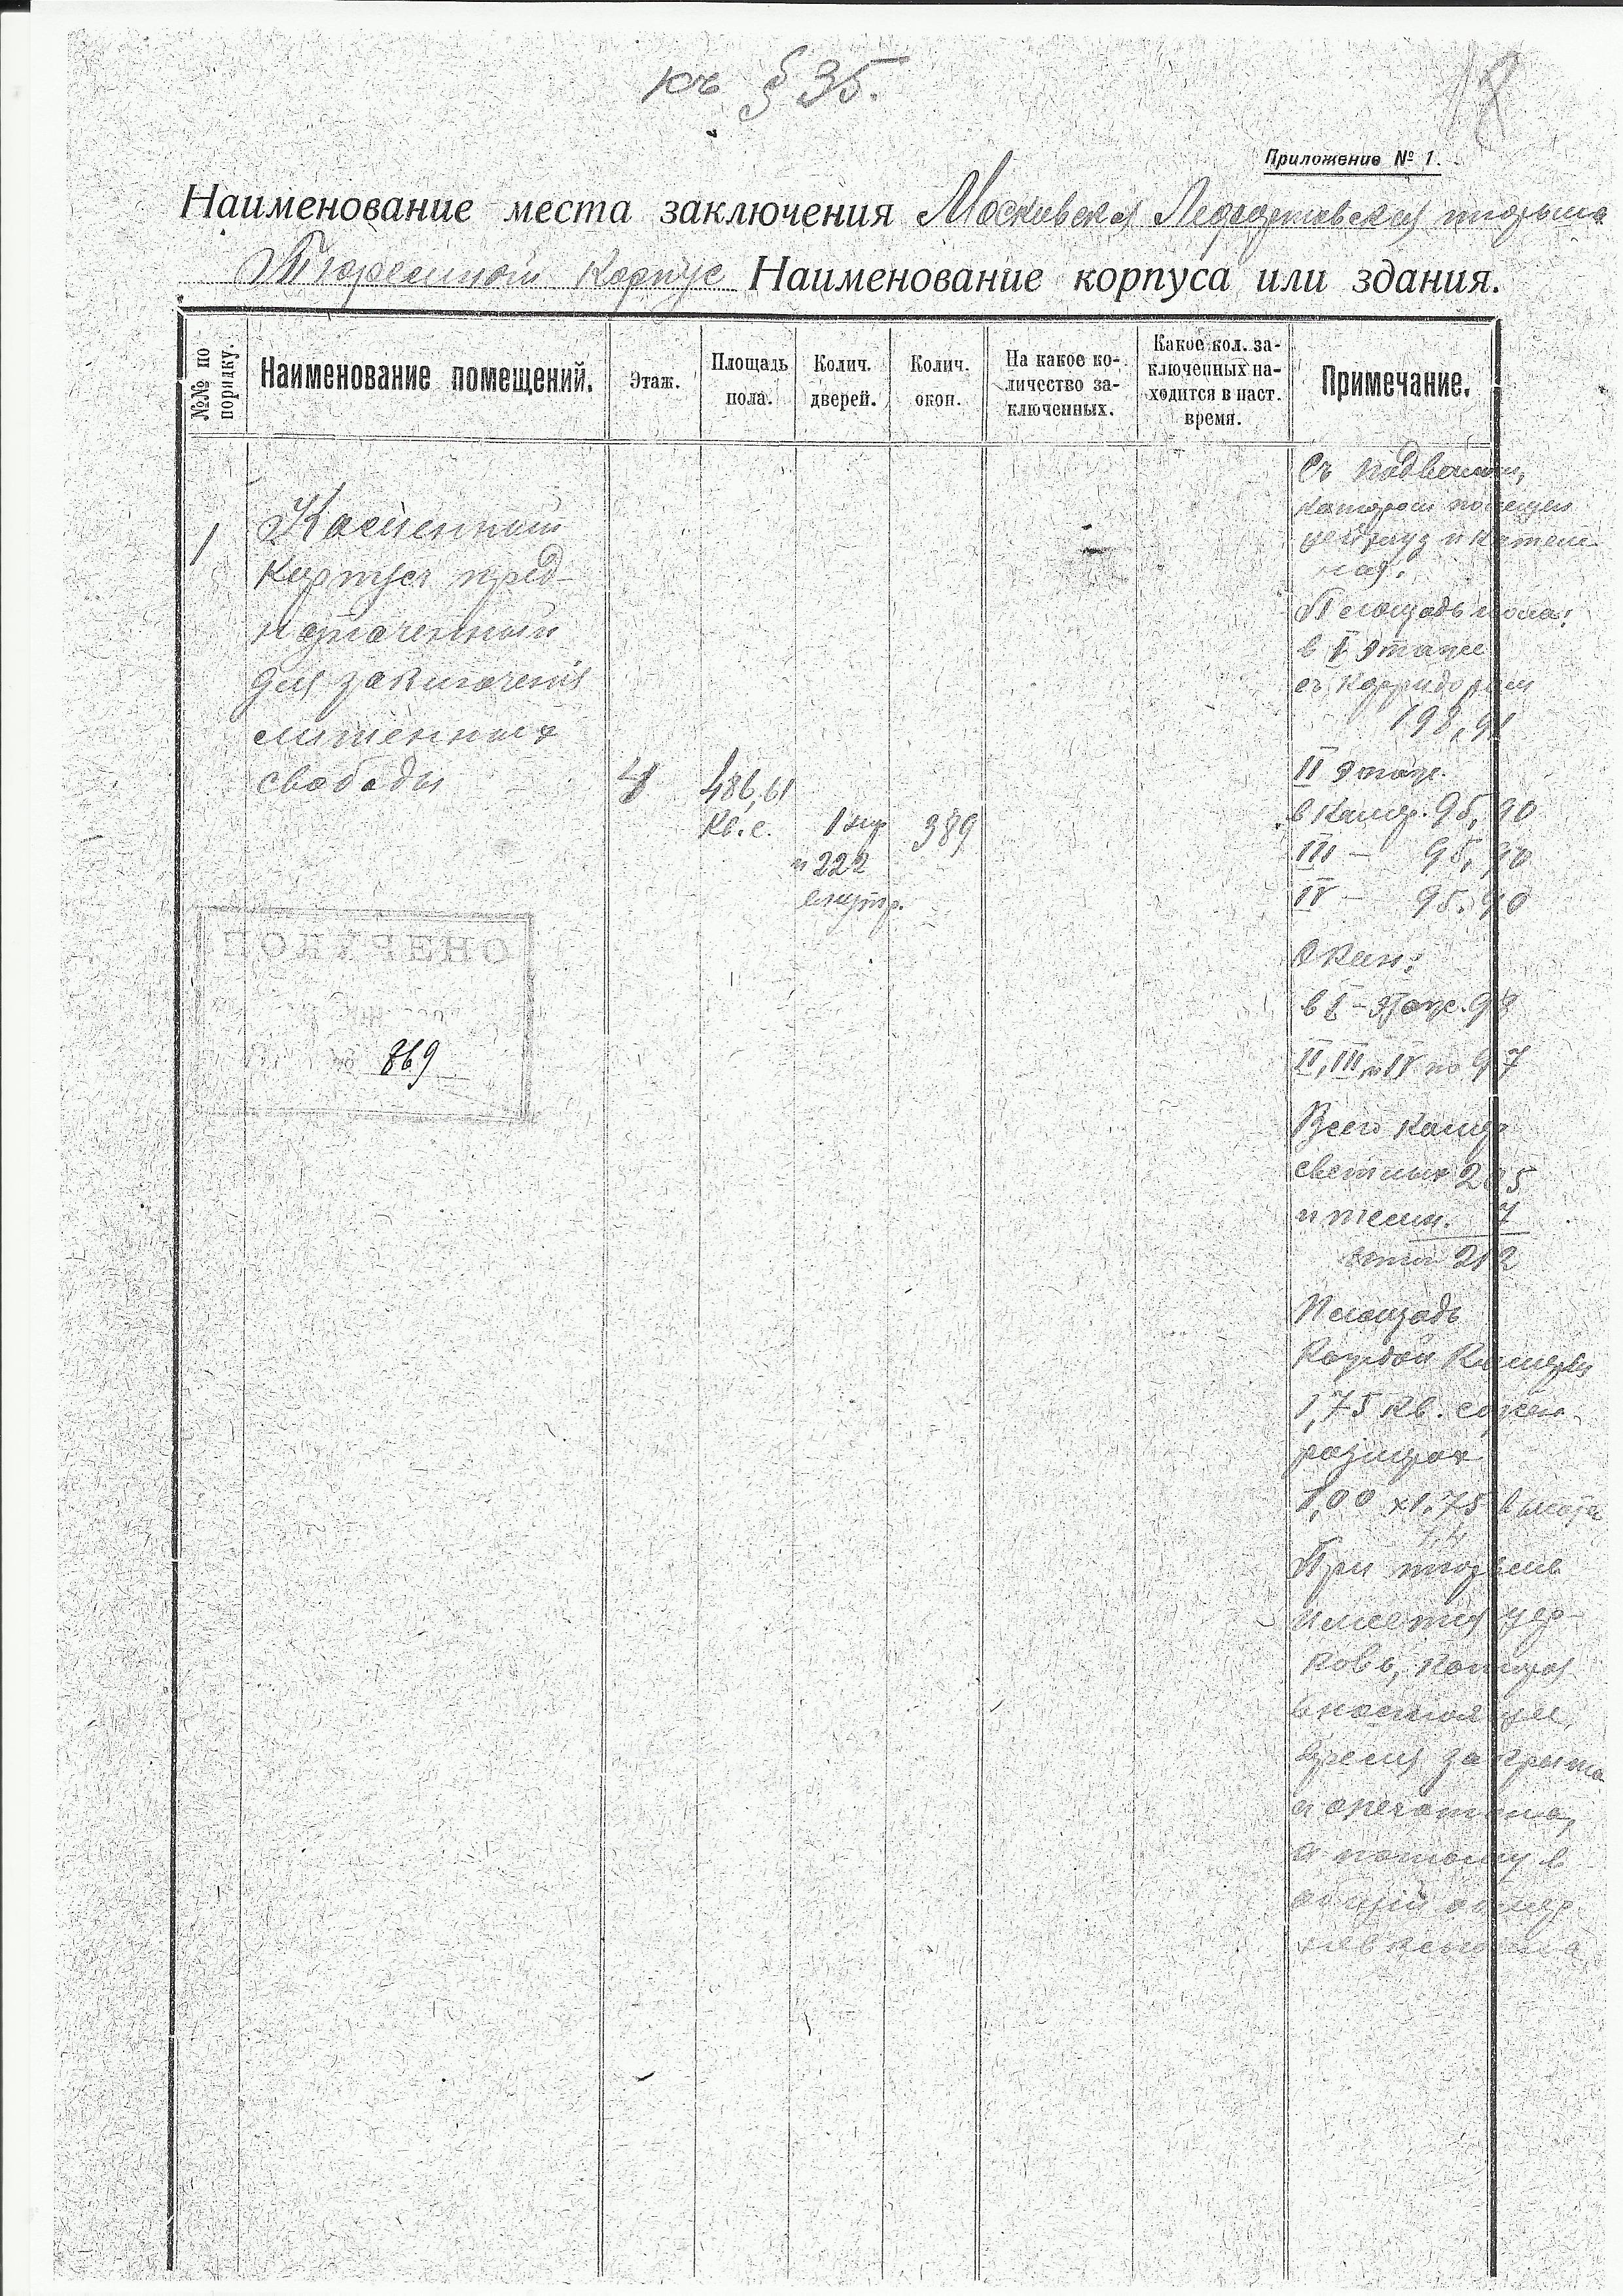 къ § 35.
18
Приложение № 1.
Наименование места заключения Московская Лефортовская тюрьма
Тюремной корпус Наименование корпуса или здания.
№№ по порядку.
Наименование помещений.
Этаж.
Площадь пола.
Колич. дверей.
Колич. окон.
На какое ко-
личество за-
ключенных.
Какое кол. за-
ключенных на-
ходится в наст.
время.
Примечание.
1
Каменный
корпус пред-
назначенный
для заключения
лишенных
свободы
4
486,61
кв. с.
и 222
внутр.
389
Съ подвалом,
котором помещен
цейхауз и котель-
ная.
Площадь пола:
в I этаже
съ коридорам
198,91
II этаж.
в камер. 95,90
III — 95,90
IV — 95.90
Окон:
в I - этаже. 98
II, III и IV по 97
Всего камер
светлых 205
и темн. 7
212
Площадь
каждой камеры
1,75 кв. сажен.
размерах
1,00 х 1,75 высота
При тюрьме
имеется цер-
ковь, которая
в настоящее
время закрыта
и опечатана,
а потому в
общий обмер
не включена
ПОЛУЧЕНО
869